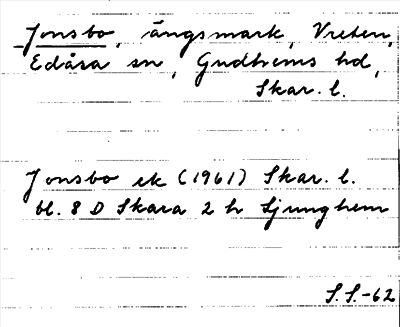 Jonsbo, ängsmark, Vreten,
Edåsa sn, Gudhems hd,
Skar. l.
Jonsbo ek (1961) Skar. l.
bl. 8 D Skara 2 h Ljunghem
S.S.-62